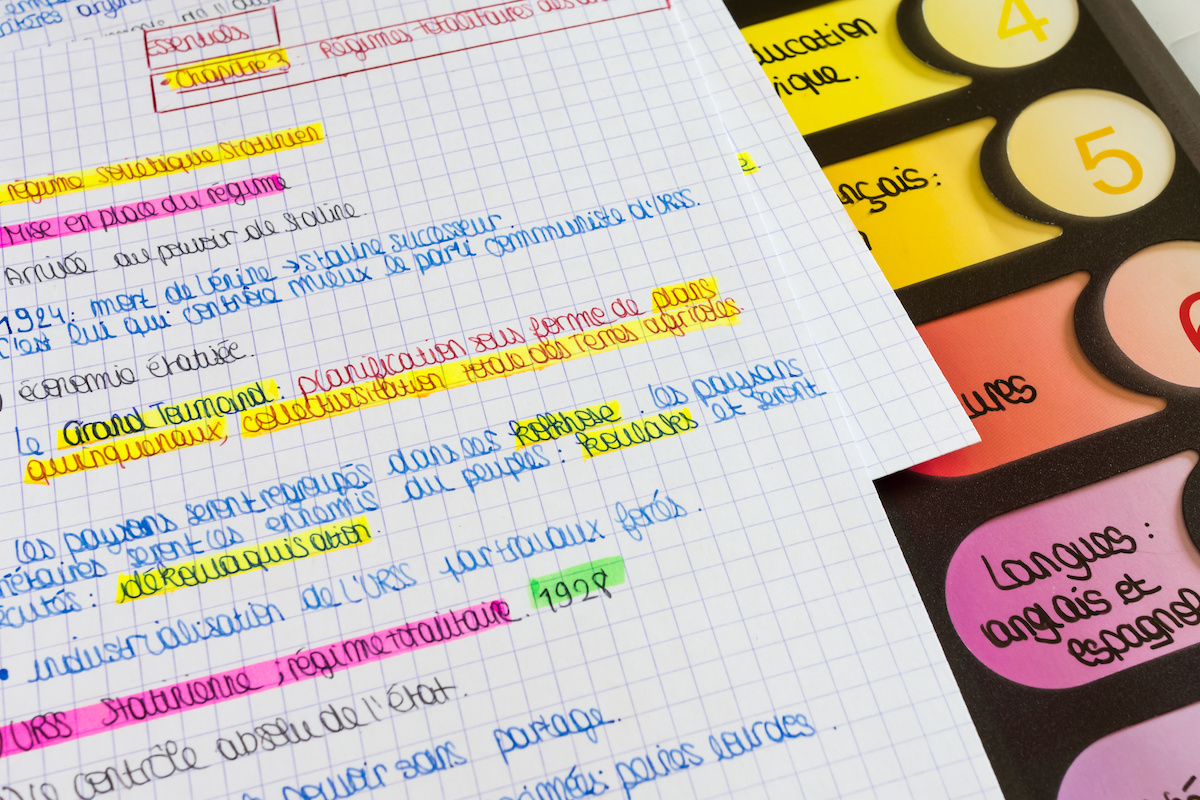 Essentiels
Chapitre 3 : Régimes totalitaires des
régime soviétique stalinien
Mise en place du régime
Arrivée au pouvoir de Staline.
1924 : mort de Lénine → Staline successeur.
C'est lui qui contrôle mieux le parti communiste d'URSS.
économie étatisée.
Le Grand Tournand : planification sous forme de plans
quinquenaux, collectivisation totale des terres agricoles.
Les paysans seront regroupés dans les kolkhose. Les paysans
seront les ennemis du peuple : koulaks et seront
dékoulaquisation.
• industrialisation de l'URSS par travaux forés.
URSS Stalinienne ; régime totalitaire. 1928
contrôle absolu de l'état.
pouvoir sans partage.
peines lourdes.
4
5
Langues :
anglais et
espagnol